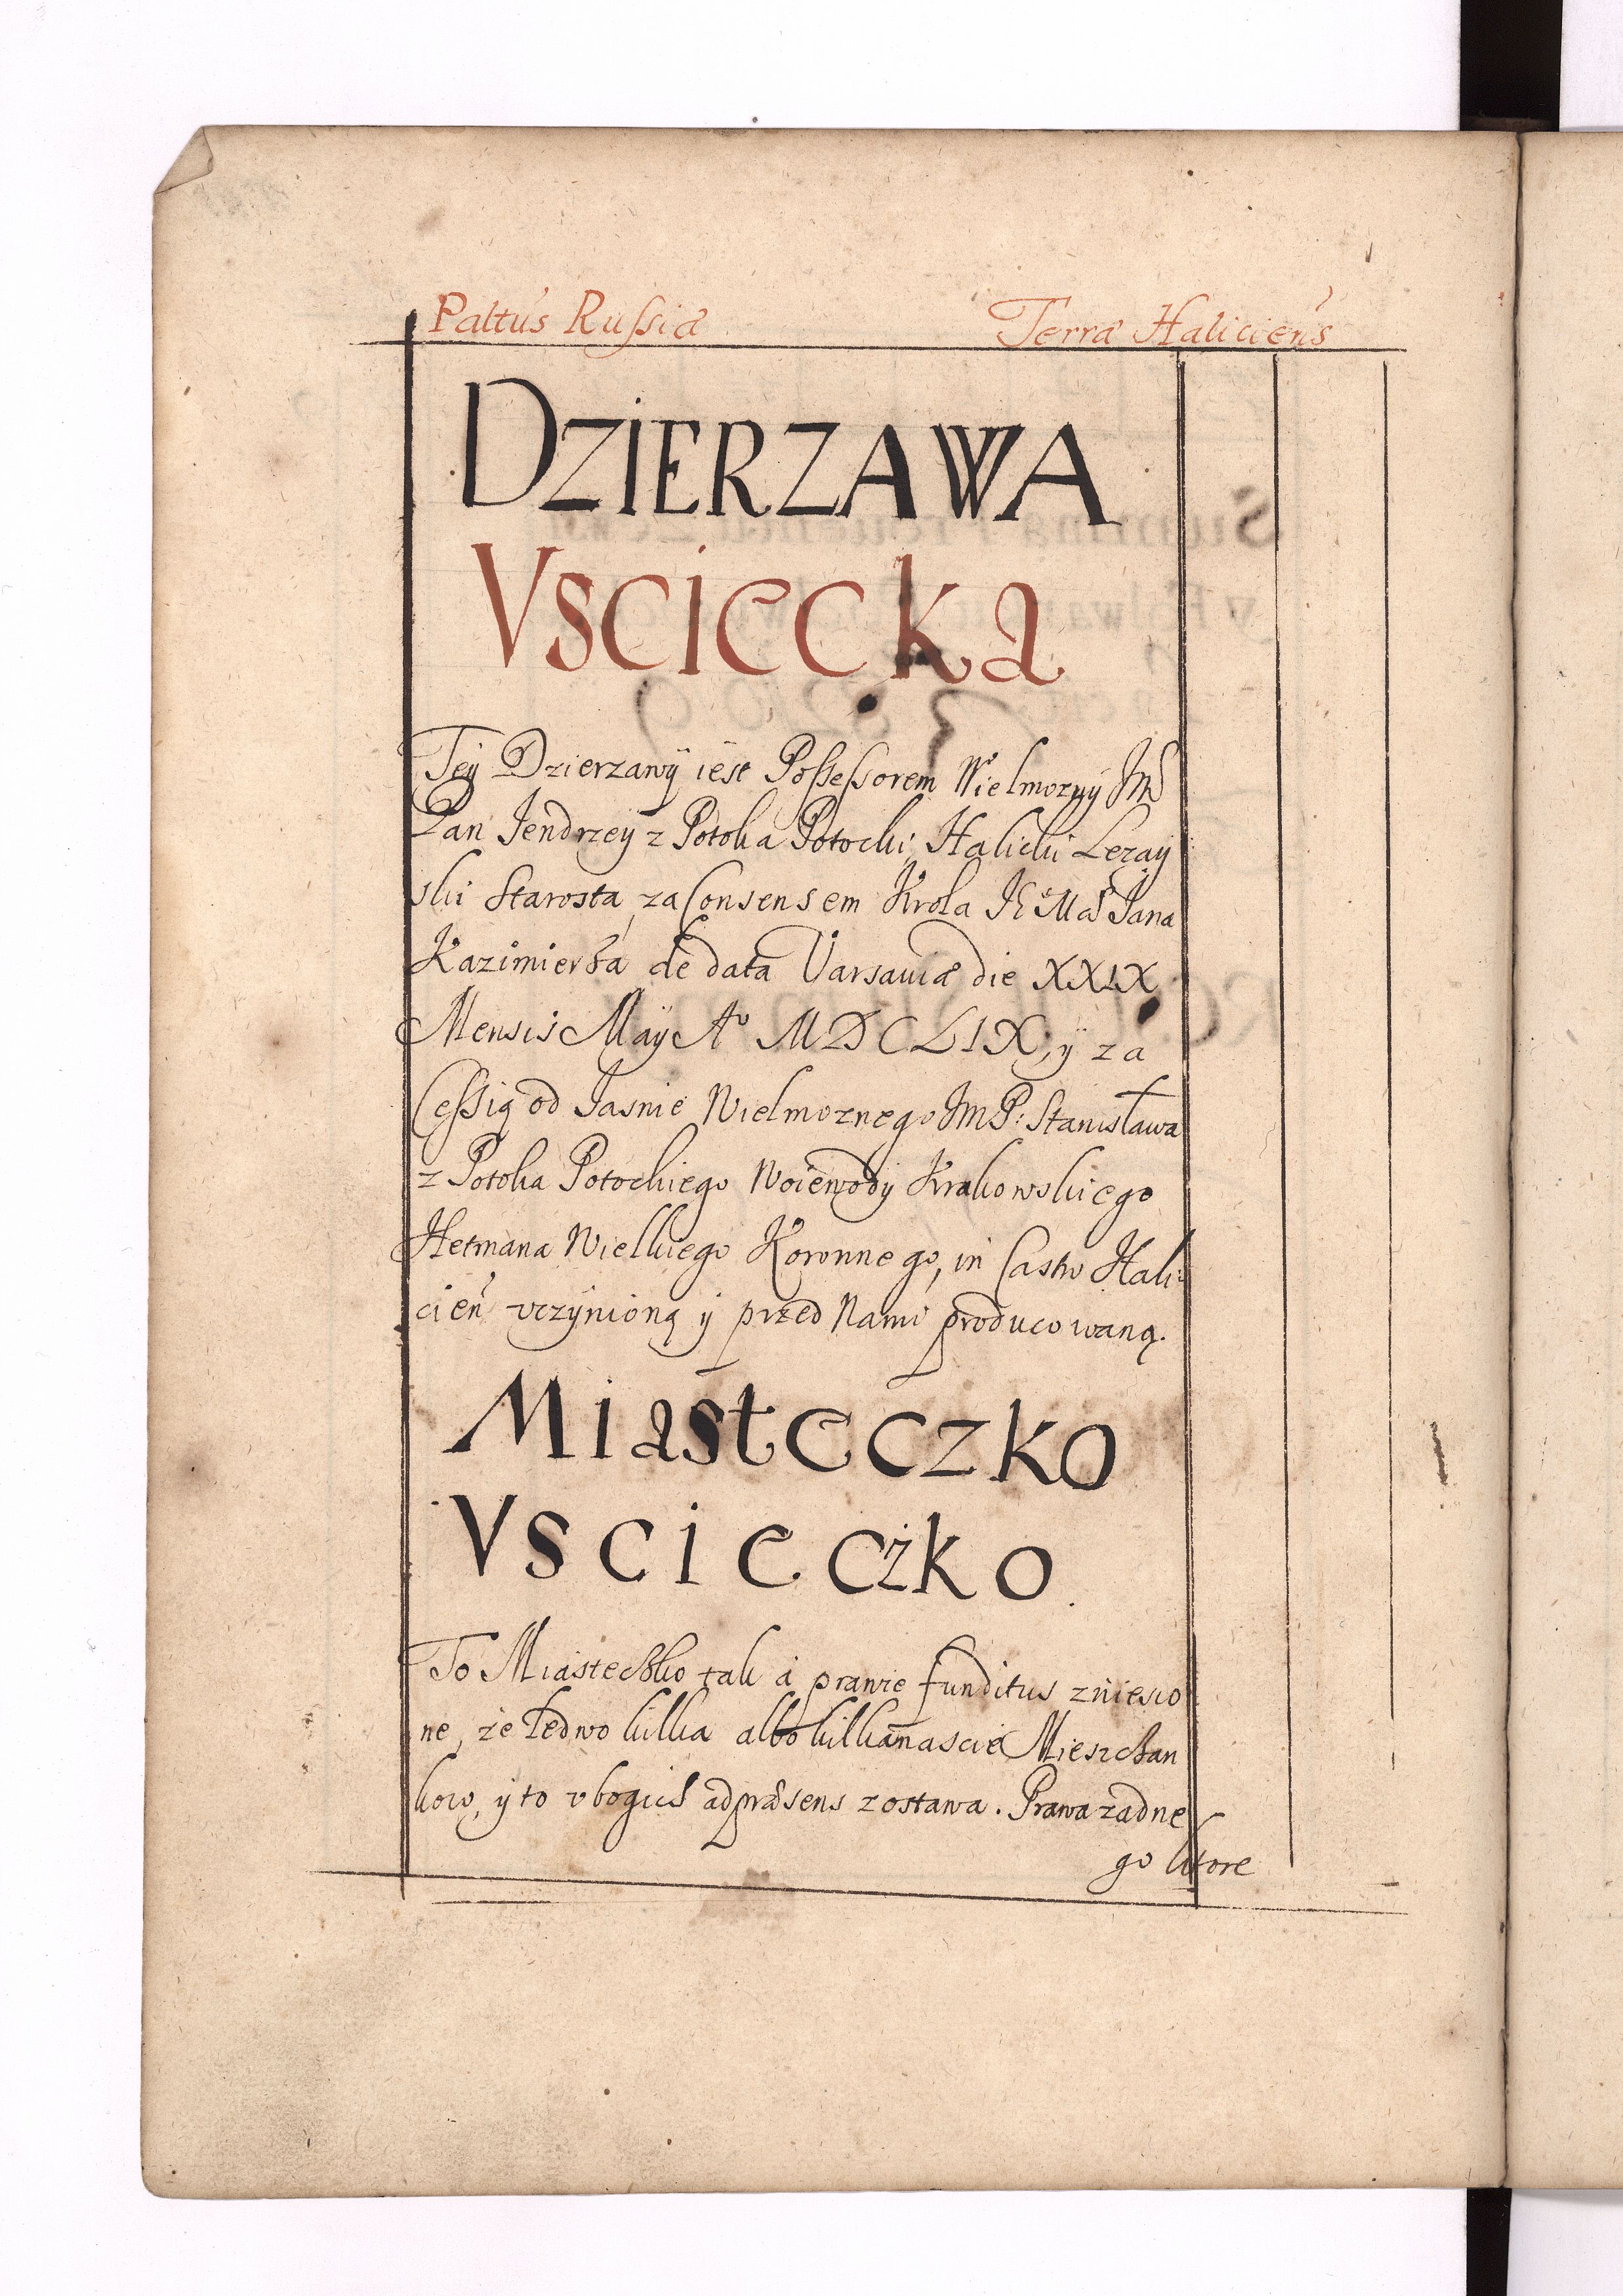 Paltus Russiæ Terræ Haliciens
DZIERZAWA
Vsciecka
Tey Dzierzawÿ iest Possessorem Wielmozny Jmć
Pan Jendrzey z Potoka Potocki, Halicki Lezay
ski Starosta, za Consensem Krola JE° Mći Jana
Kazimierza de data Varsaviæ die XXIX
Mensis Maÿ A° MDCLIX, ÿ za
Cessią od Jasnie Wielmoznego JmP: Stanisława
z Potoka Potockiego Woiewody Krakowskiego
Hetmana Wielkiego Koronnego, in Castro Hali-
cień vczÿnioną ÿ przed Nami producowaną.
Miasteczko
Vscieczko
To Miasteczko tak a prawie funditus zniesio
ne, że ledwo kilka albo kilkanascie Mieszczan
kow, ÿ to vbogich ad præsens zostawa. Prawa zadne
go ktore